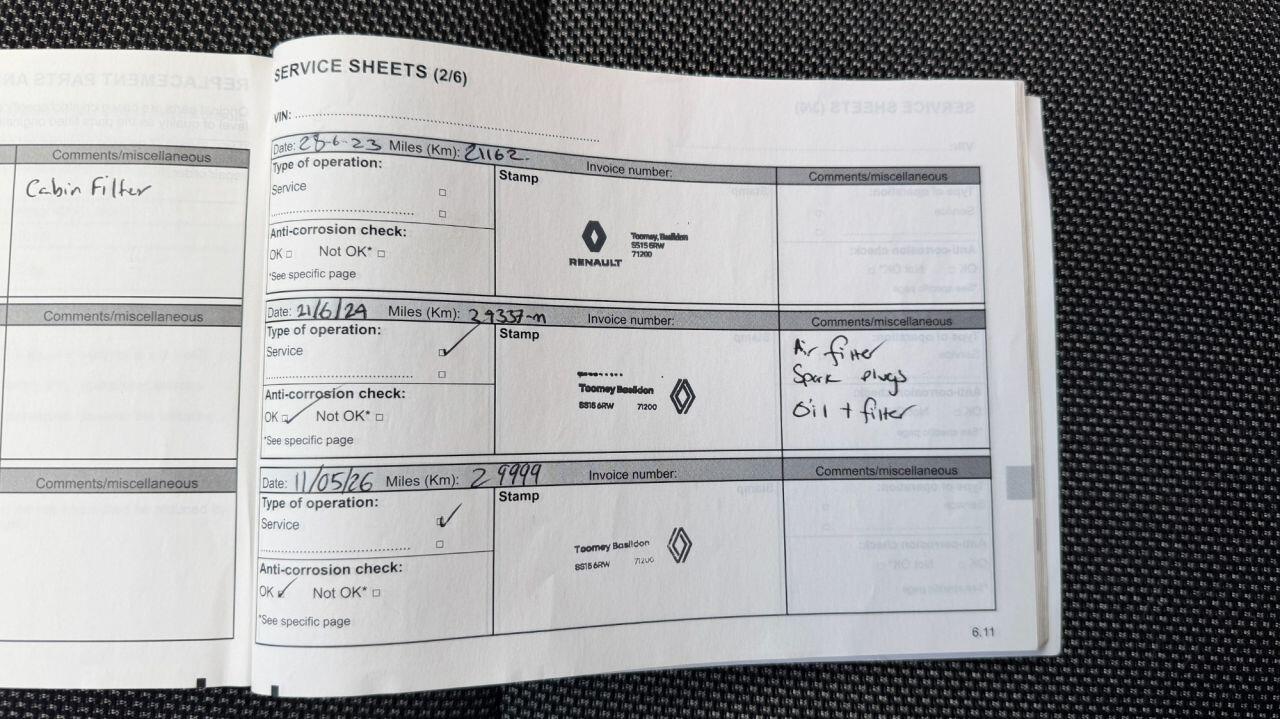 Comments/miscellaneous
Cabin Filter
Comments/miscellaneous
Comments/miscellaneous
SERVICE SHEETS (2/6)
VIN:
Date: 28-6-23 Miles (Km): 21162. Invoice number:
Comments/miscellaneous
Type of operation:
Stamp
Service
Anti-corrosion check:
OK Not OK*
*See specific page
RENAULT
Toomey, Basildon
SS15 6RW
71200
Date: 21/6/24 Miles (Km): Invoice number:
Comments/miscellaneous
Type of operation:
Stamp
Service
Anti-corrosion check:
OK Not OK*
*See specific page
Toomey Basildon
SS15 6RW 71200
Air filter
Spark plugs
Oil + filter
Date: 11/05/26 Miles (Km): 29999 Invoice number:
Comments/miscellaneous
Type of operation:
Stamp
Service
Anti-corrosion check:
OK Not OK*
*See specific page
Toomey Basildon
SS15 6RW 71200
6.11